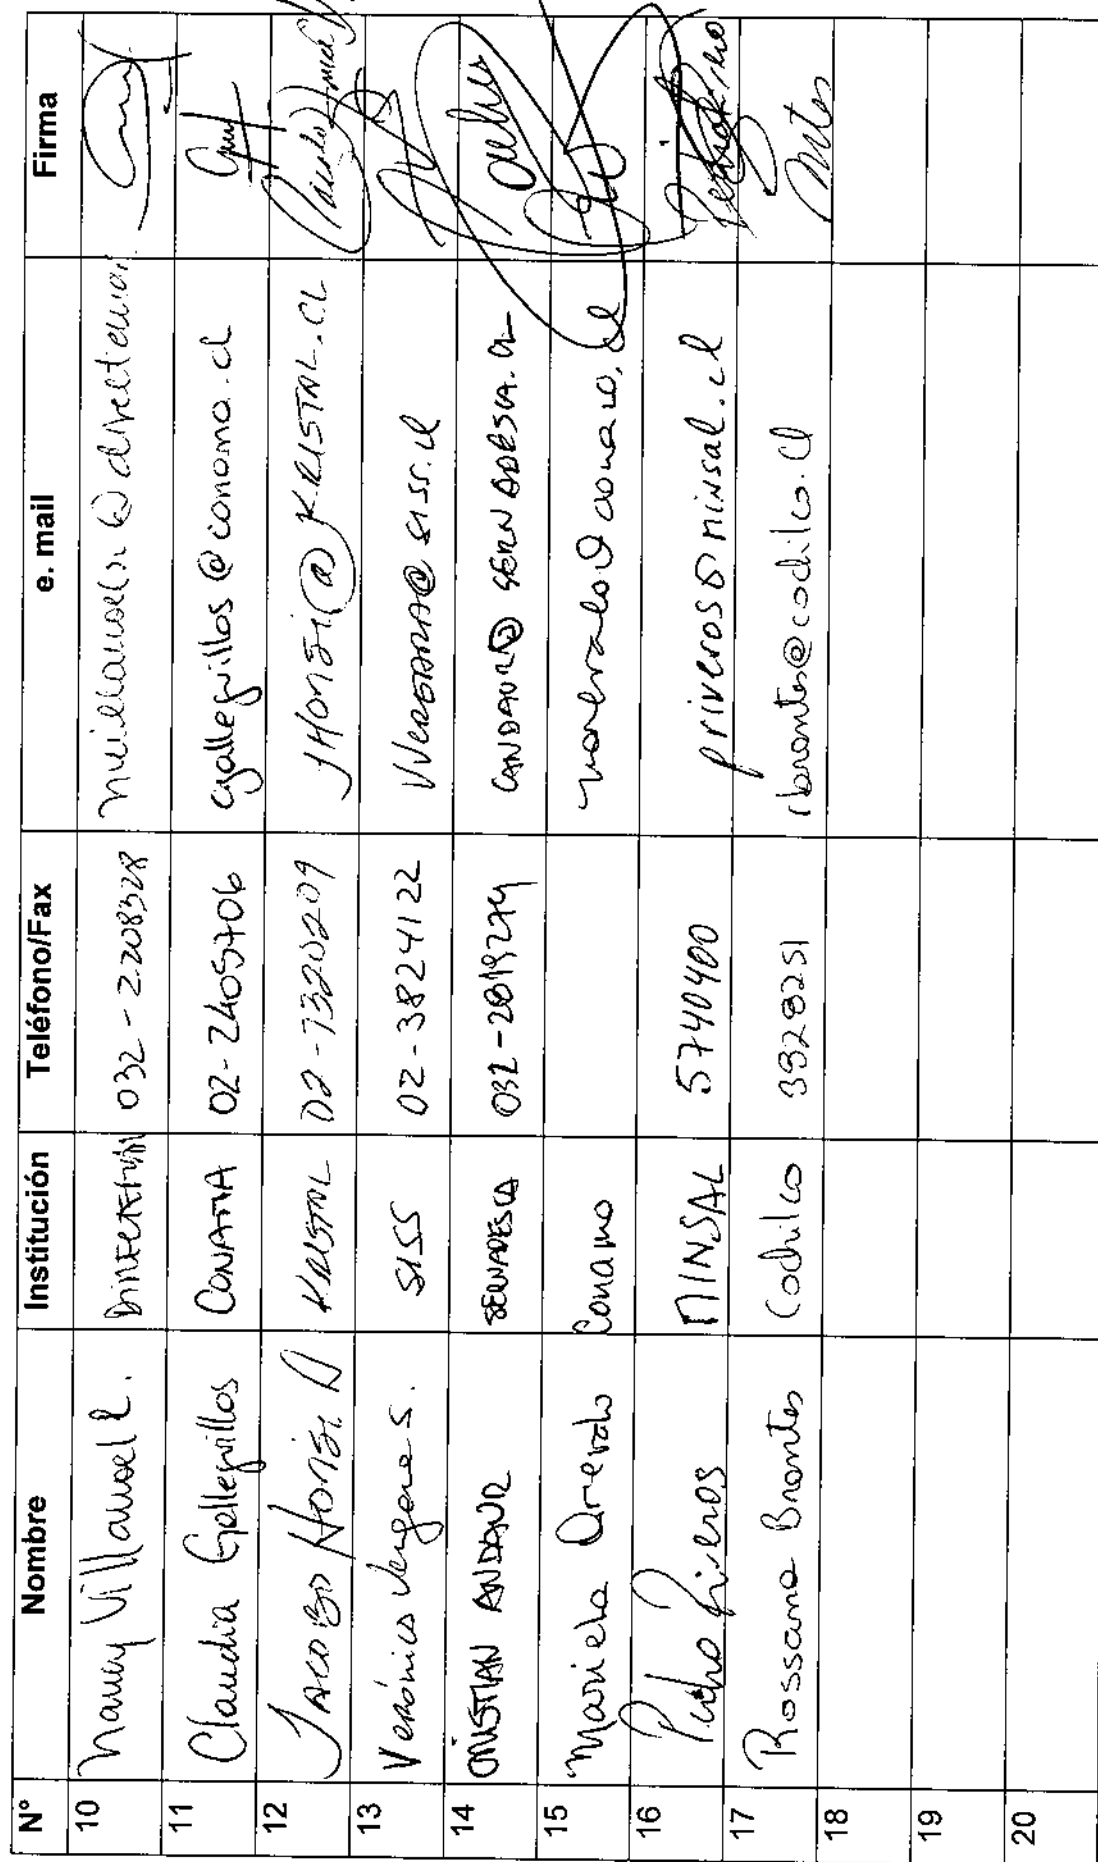 N° Nombre Institución Teléfono/Fax e. mail Firma
10 Nancy Villarroel R. 032 - 2208328
11 Claudia Galleguillos CONAMA 02-2405706 cgalleguillos@conama.cl
12 JACOBO HONSI KRISTAL 02-7320209 JHONSI@KRISTAL.CL
13 Verónica Vergara S. SISS 02-3824122 VVERGARA@SISS.cl
14 CRISTIAN ANDAUR SERNAPESCA 032-2819274 CANDAUR@SERNAPESCA.CL
15 Mariela Arevalo Conama
16 Pedro Riveros MINSAL 5740400 priveros@minsal.cl
17 Rossana Brantes Cochilco 3828251 rbrantes@cochilco.cl
18
19
20